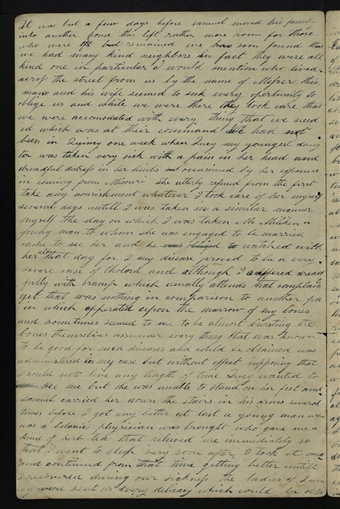 It was but a few days before Samuel moved his family
into another house this left rather more room for those
who were left but remained we soon found that
we had many kind neighbors in fact they were all
kind one in particular I would mention who lived
across the street from us by the name of Messer this
man and his wife seemed to seek every opertunity to
oblige us and while we were there they took care that
we were accomodated with every thing that we need
ed which was at their command We had not
been in Quincy one week when Lucy my youngest daug
ter was taken very sick with a pain in her head and
dreadful distress in her limbs occasioned by her exposure
in coming from Missouri She utterly refused from the first
take any nourishment whatever I took care of her myself
several days untill I was taken in a similar manner
myself the day on which I was taken Mr Miliken
young man to whom she was engaged to be married
came to see her and he watched with
her that day for I my disease proved to be a very
severe case of cholera and although I suffered dread
fully with cramp which usually attends that complaint
yet that was nothing in comparison to another pain
in which opperated upon the marrow of my bones
and sometimes seemed to me to be almost bursting the
bones themselves asunder every thing that was known
to be good for such illness and could be obtained was
administered in my case but without effect supposing that
I could not live any length of time Lucy wanted to
see me but she was unable to stand on her feet and
Samuel carried her down the stairs in his arms several
times before I got any better at last a young man who
was a botanic physician was brought who gave me a
kind of herb tea that relieved me immediately so
that I went to sleep very soon after I took it
and continued from that time getting better untill
I recovered during our sickness the ladies of Quin
cy sent us every delicacy which could be